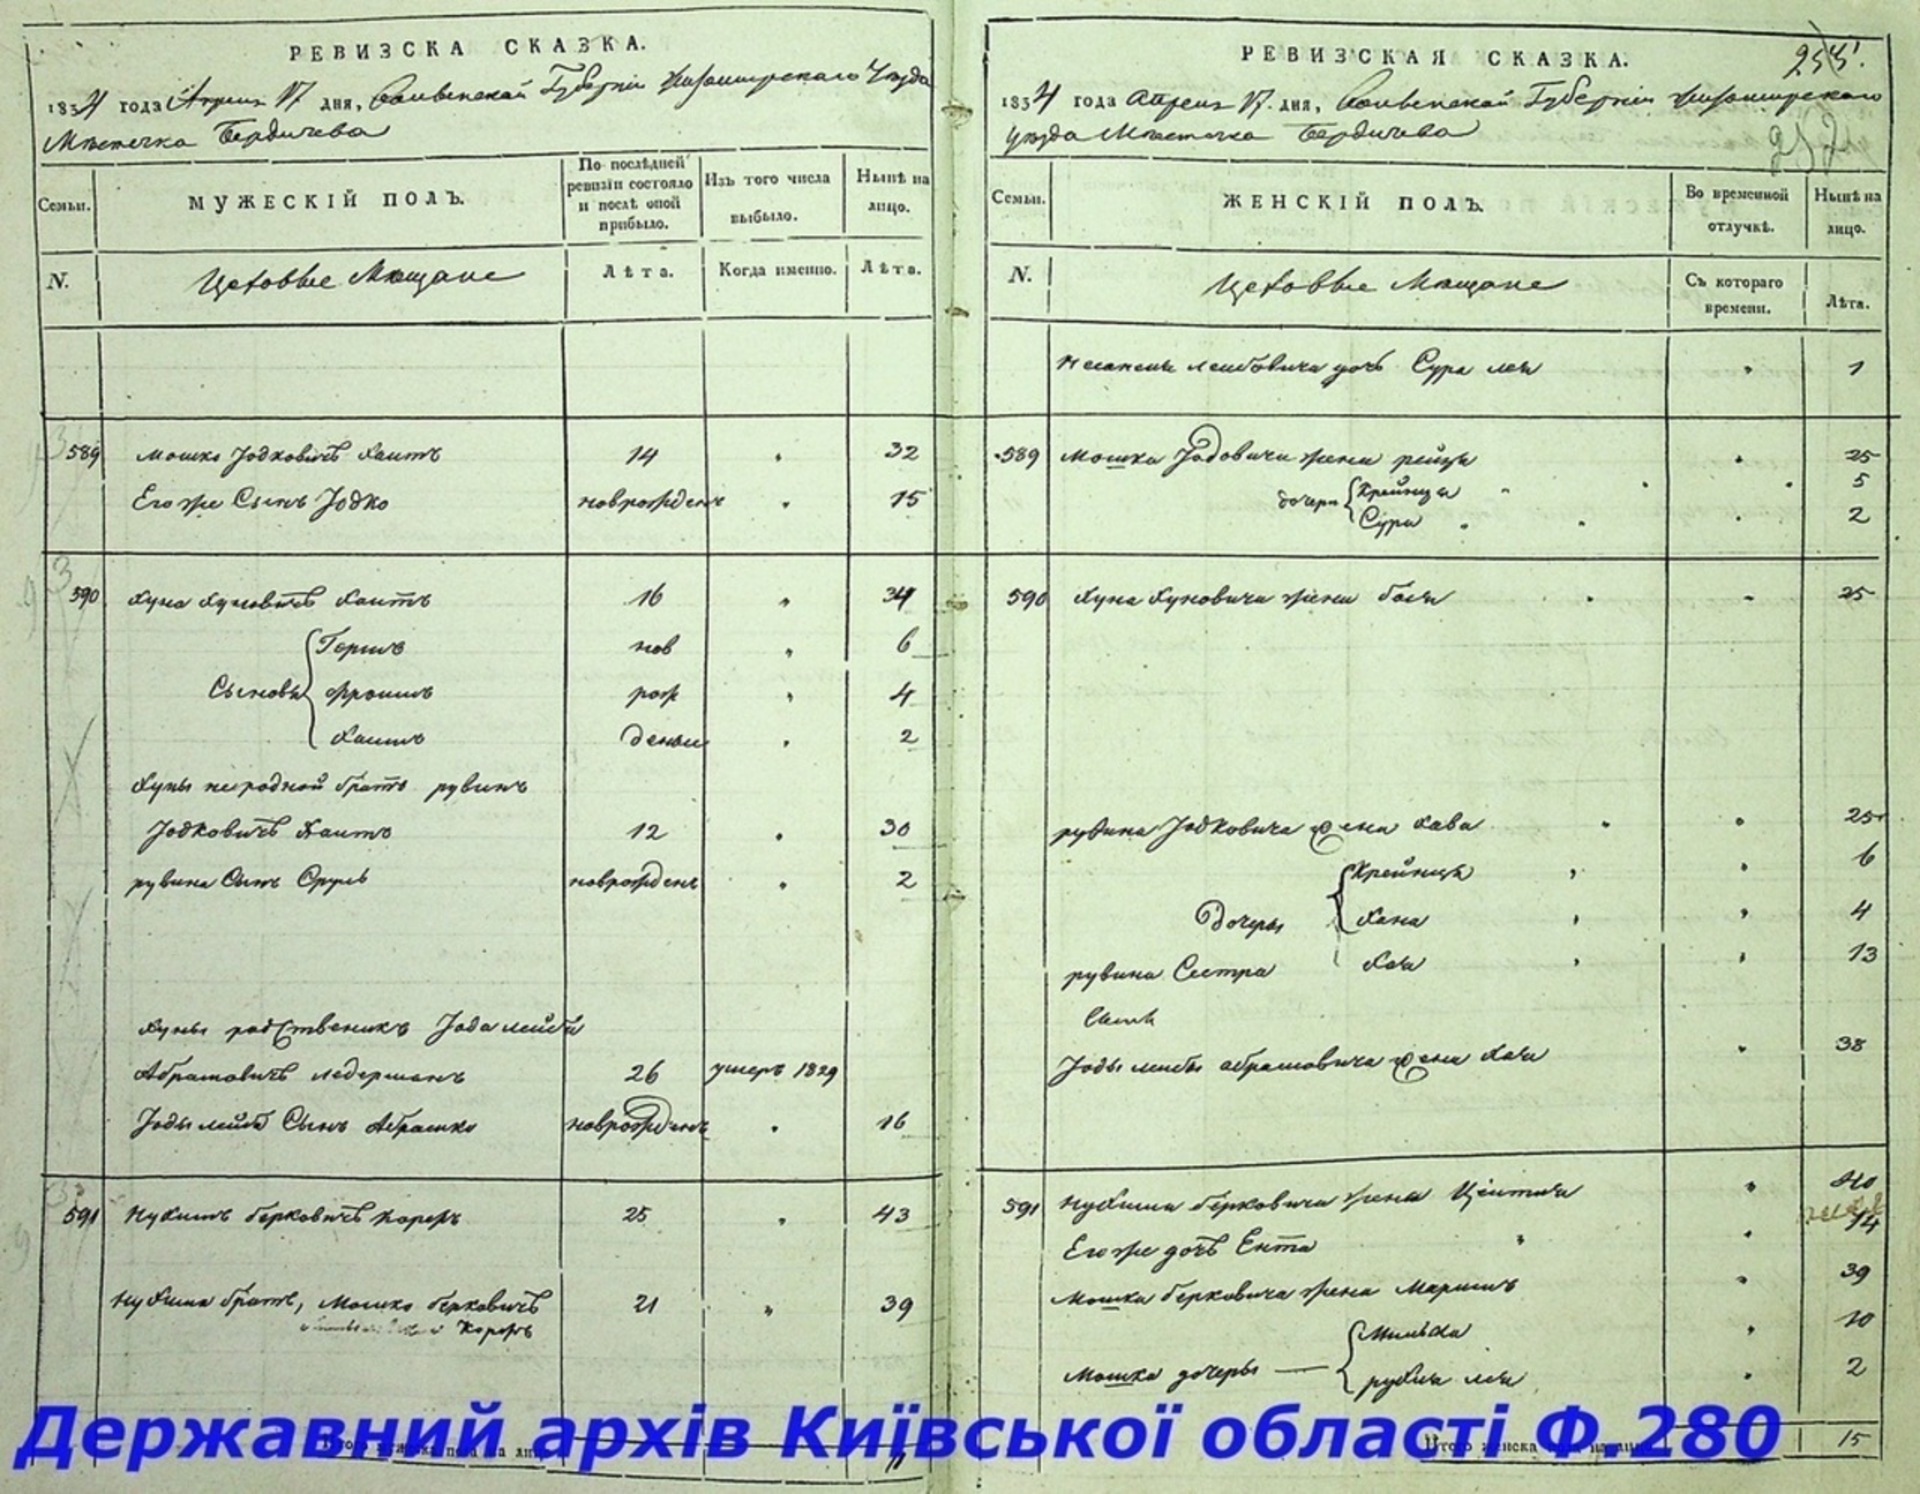 РЕВИЗСКА СКАЗКА.
1834 года Апреля 17 дня, Волынской Губерніи Житомирскаго Уезда
Местечка Бердичева
Семьи.
МУЖЕСКІЙ ПОЛЪ.
По послѣдней ревизіи состояло и послѣ оной прибыло.
Изъ того числа выбыло.
Нынѣ на лицо.
N.
Цеховые Мещане
Лѣта.
Когда именно.
Лѣта.
589 Мошко Іодковичъ Хаитъ 14 32
Его же Сынъ Іодко новрожденъ 15
590 Хуна Хуновичъ Хаитъ 16 34
Гершъ нов 6
Сыновья Фроимъ рож 4
Хаимъ дены 2
Хуны неродной братъ рувинъ
Іодковичъ Хаитъ 12 30
рувина Сынъ Сруль новрожденъ 2
Хуны родственикъ Іода лейба
Абрамовичъ ледерманъ 26 умеръ 1829
Іоды лейбы Сынъ Абрашко новрожденъ 16
591 Нухимъ берковичъ Корфъ 25 43
Нухима братъ, Мошко берковичъ 21 39
Корфъ
РЕВИЗСКАЯ СКАЗКА.
1834 года Апреля 17 дня, Волынской Губерніи Житомирскаго
уезда Местечка Бердичева
Семьи.
ЖЕНСКІЙ ПОЛЪ.
Во временной отлучкѣ.
Нынѣ на лицо.
N.
Цеховые Мещане
Съ котораго времени.
Лѣта.
лейбовича дочь Сура лея 1
589 Мошка Іодовича жена рейзя 25
дочери Крейнця 5
Сура 2
590 Хуна Хуновича жена бася 25
рувина Іодковича жена Хава 25
Крейнця 6
Дочеры Хана 4
рувина Сестра Хая 13
Іоды лейбы абрамовича жена Хая 38
591 Нухима берковича жена 40
Его же дочь Ента 14
Мошка берковича жена Маримъ 39
Мошка дочеры
10
рухля лея 2
Итого женска пола на лицо 15
Державний архів Київської області Ф.280